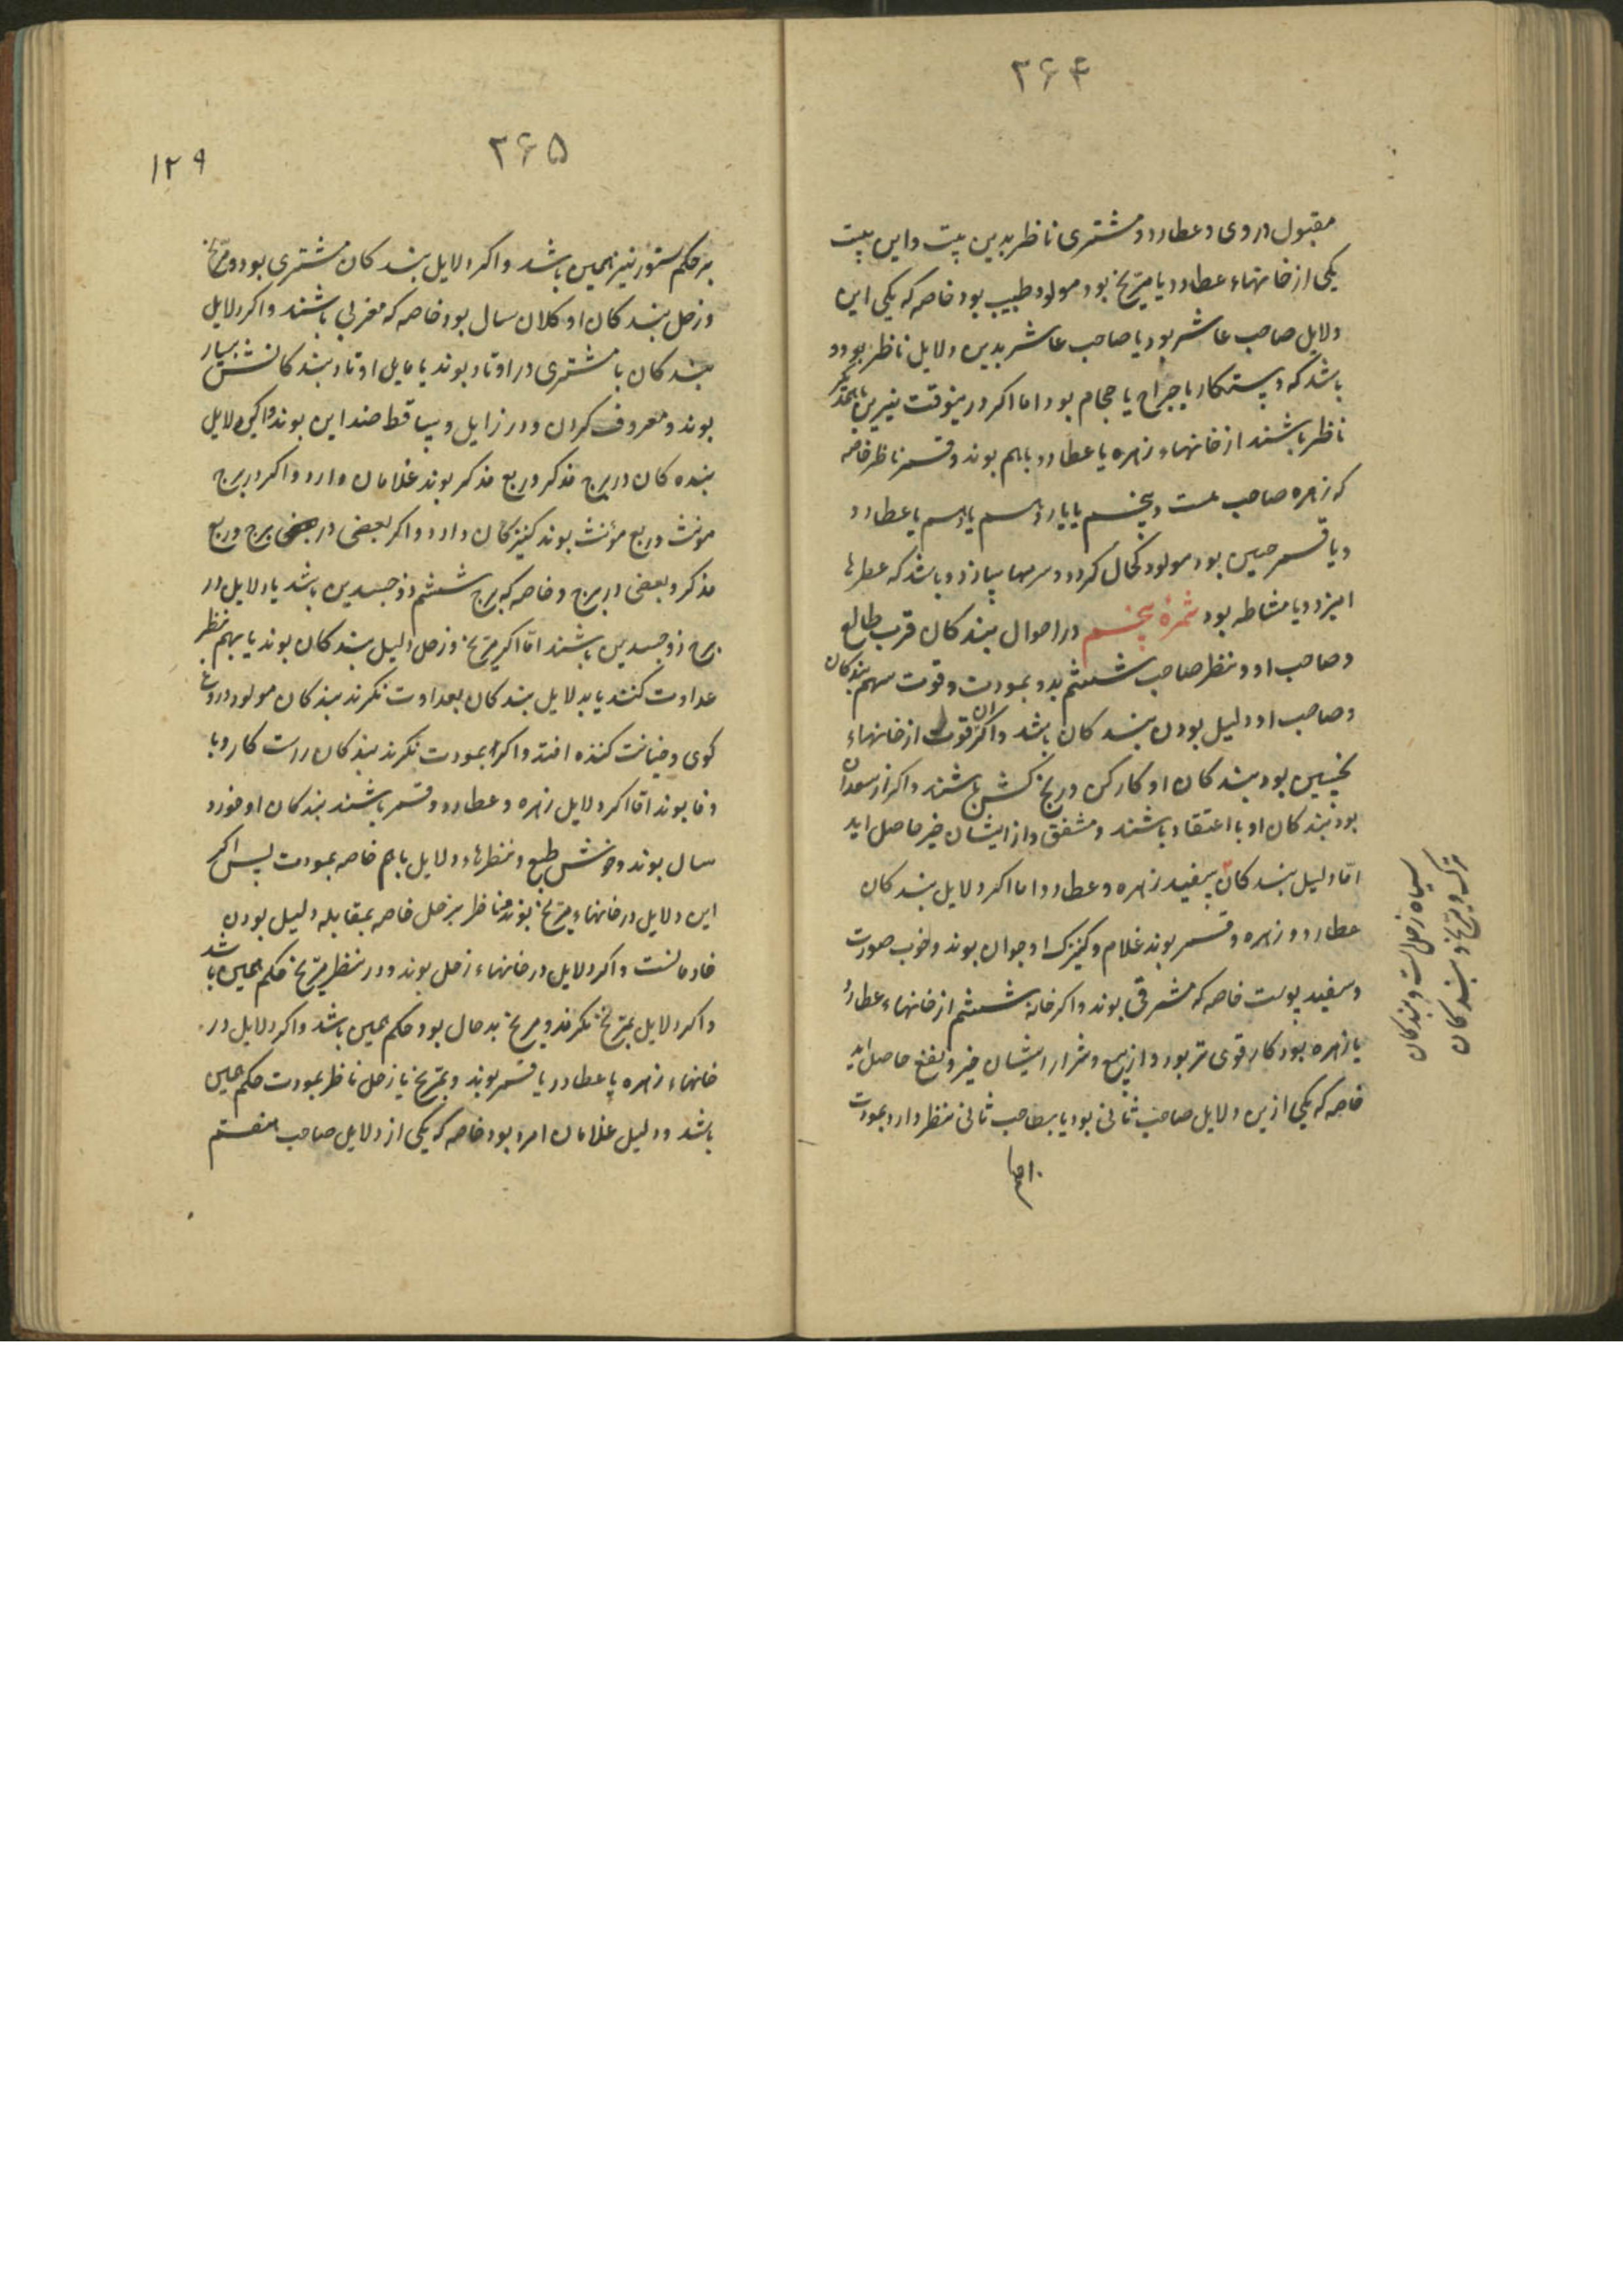 ۲۶۴
مقبول در وی و عطارد و مشتری ناظر بدین بیت و این بیت
یکی از خانهاء عطارد یا مریخ بود مولود طبیب بود خاصه که یکی این
دلایل صاحب عاشر بود یا صاحب عاشر بدین دلایل ناظر بود و
باشد که دستکار یا جراح یا حجام بود اما اکر درینوقت نیرین
ناظر باشند از خانهاء زهره یا عطارد باهم بوند و قمر ناظر خاصه
که زهره صاحب بیست و پنجم یا یازدهم یا دهم یا عطارد
و یا قمر چنین بود مولود کحال کردد و سرمها سازد و باشد که عطرها
امیزد و یا مشاطه بود ثمرهٔ پنجم در احوال بندکان قرب طالع
و صاحب او و نظر صاحب ششم بدو بمودت و قوت سهم بندکان
و صاحب او دلیل بودن بندکان باشد و اکر ان قوت از خانهاء
نحسین بود بندکان او کارکن و رنج کش باشند و اکر از سعدان
بود بندکان او با اعتقاد باشند و مشفق و از ایشان خیر حاصل اید
اما دلیل بندکان سفید زهره و عطارد اما اکر دلایل بندکان
عطارد و زهره و قمر بوند غلام و کنیزک او جوان بوند و خوب صورت
و سفید پوست خاصه که مشرقی بوند و اکر خانهٔ ششم از خانهاء عطارد
یا زهره بود کار قوی تر بود و از بیع و شرا ایشان خیر و نفع حاصل اید
خاصه که یکی ازین دلایل صاحب ثانی بود یا بصاحب ثانی نظر دارد بمودت
سیاه زحل است و بندکان
ترک مریخ و بندکان
۲۶۵
۱۲۹
بر حکم ستور نیز همین باشد و اکر دلایل بندکان مشتری بود و مریخ
و زحل بندکان او کلان سال بود خاصه که مغربی باشند و اکر دلایل
بندکان با مشتری در اوتاد بوند یا مایل اوتاد بندکانش بسیار
بوند و معروف کردن و در زایل و ساقط ضد این بوند و اکر دلایل
بنده کان در برج مذکر و ربع مذکر بوند غلامان دارد و اکر در برج
مونث و ربع مؤنث بوند کنیزکان دارد و اکر بعضی در برج و ربع
مذکر و بعضی در برج و خاصه که برج ششم ذوجسدین باشد یا دلایل در
برج ذوجسدین باشند اما اکر مریخ و زحل دلیل بندکان بوند یا بهم نظر
عداوت کنند یا بدلایل بندکان بعداوت نکرند بندکان مولود دروغ
کوی و خیانت کننده افتد و اکر بمودت نکرند بندکان راست کار و با
وفا بوند اما اکر دلایل زهره و عطارد و قمر باشند بندکان او خورد
سال بوند و خوش طبع و نظرهاء دلایل باهم خاصه بمودت پس اکر
این دلایل در خانهاء مریخ بوند و مناظر بزحل خاصه بمقابله دلیل بودن
خادمانست و اکر دلایل در خانهاء زحل بوند و در نظر مریخ حکم همین باشد
و اکر دلایل بمریخ نکرند و مریخ بدحال بود حکم همین باشد و اکر دلایل در
خانهاء زهره یا عطارد یا قمر بوند و بمریخ یا زحل ناظر بمودت حکم چنین
باشد و دلیل غلامان امرد بود خاصه که یکی از دلایل صاحب هفتم